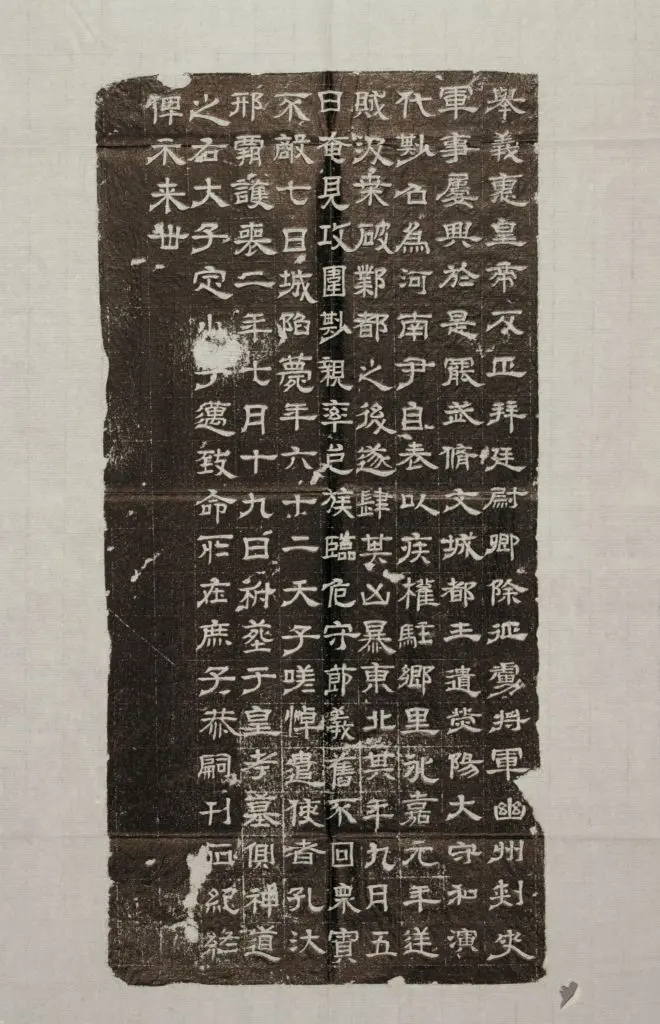 舉義惠皇帝反正拜廷尉卿除征虜將軍幽州刺史
軍事屢興於是罷武脩文城都王遣熒陽大守和演
代尠召為河南尹自表以疾權駐鄉里永嘉元年逆
賊汲桒破鄴都之後遂肆其凶暴東北其年九月五
日奄見攻圍尠親率邑族臨危守節義舊不回眾寡
不敵七日城陷薨年六十二天子嗟悼遣使者孔汏
邢霸護喪二年七月十九日祔葬于皇考墓側神道
之右大子定小子邁致命所在庶子恭嗣刊石紀終
俾示来世